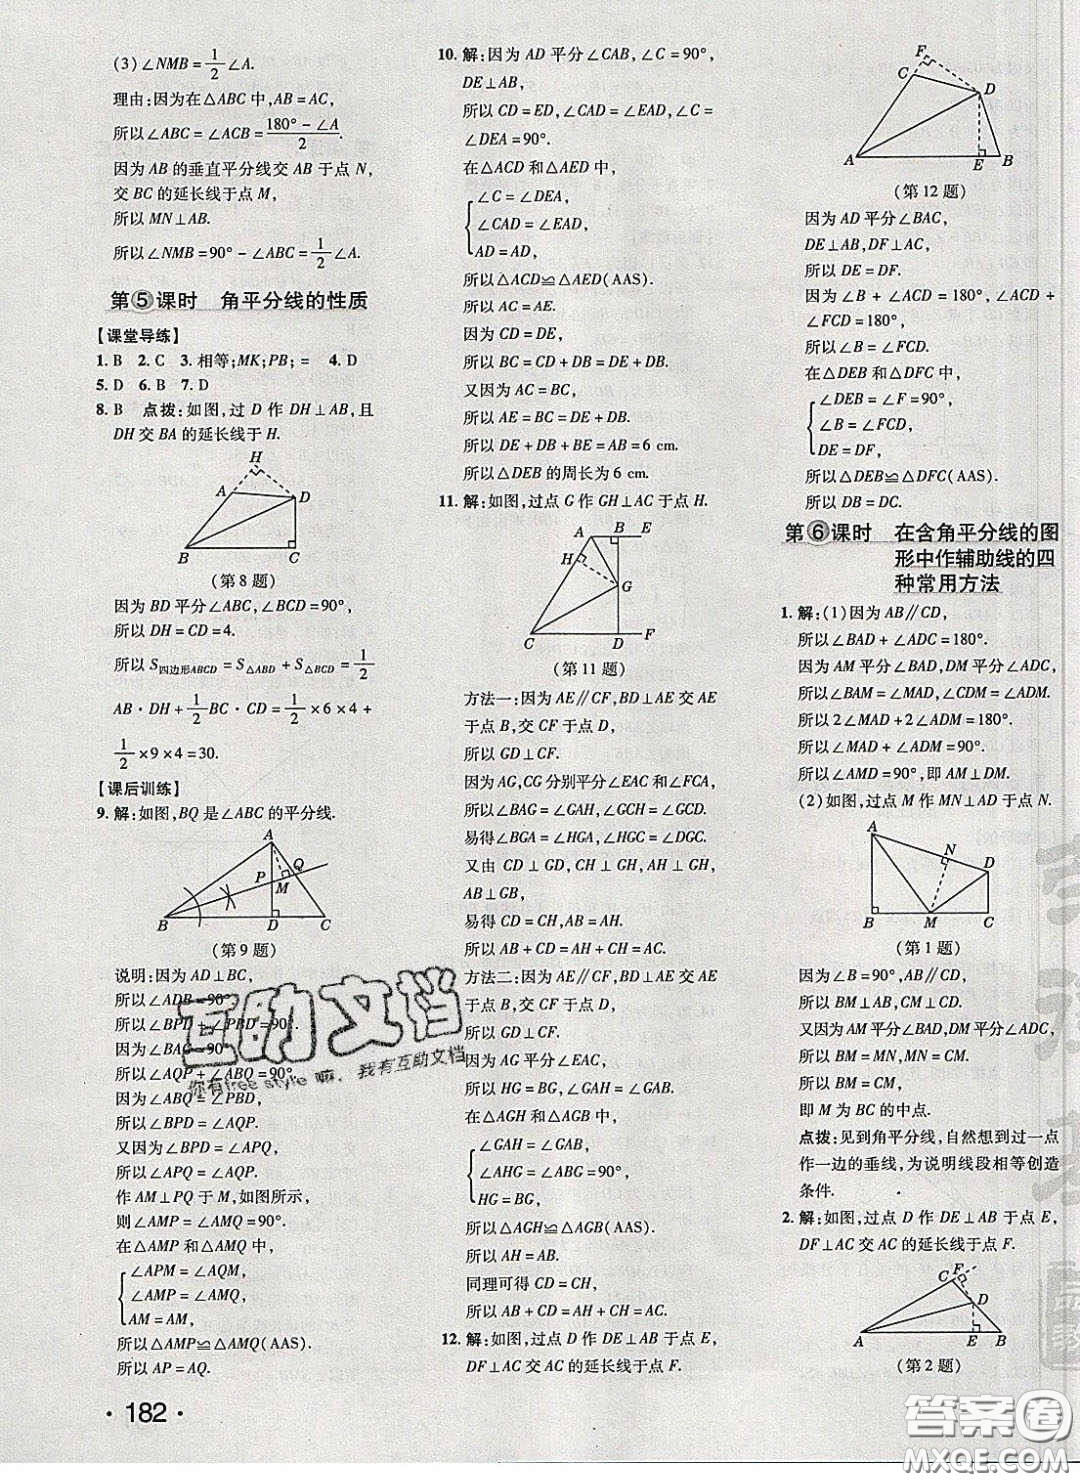 (3)∠NMB=1/2∠A.
理由:因为在△ABC中,AB=AC,
所以∠ABC=∠ACB=(180°-∠A)/2.
因为AB的垂直平分线交AB于点N,
交BC的延长线于点M,
所以MN⊥AB.
所以∠NMB=90°-∠ABC=1/2∠A.
第⑤课时 角平分线的性质
【课堂导练】
1. B 2. C 3. 相等;MK;PB;= 4. D
5. D 6. B 7. D
8. B 点拨:如图,过D作DH⊥AB,且
DH交BA的延长线于H.
H
A
D
B
C
(第8题)
因为BD平分∠ABC,∠BCD=90°,
所以DH=CD=4.
所以S四边形ABCD=S△ABD+S△BCD=1/2
AB·DH+1/2BC·CD=1/2×6×4+
1/2×9×4=30.
【课后训练】
9. 解:如图,BQ是∠ABC的平分线.
A
P
Q
M
B
D
C
(第9题)
说明:因为AD⊥BC,
所以∠ADB=90°.
所以∠BPD+∠PBD=90°.
因为∠BAC=90°,
所以∠AQP+∠ABQ=90°.
因为∠ABQ=∠PBD,
所以∠BPD=∠AQP.
又因为∠BPD=∠APQ,
所以∠APQ=∠AQP.
作AM⊥PQ于M,如图所示,
则∠AMP=∠AMQ=90°.
在△AMP和△AMQ中,
∠APM=∠AQM,
∠AMP=∠AMQ,
AM=AM,
所以△AMP≌△AMQ(AAS).
所以AP=AQ.
·182·
10. 解:因为AD平分∠CAB,∠C=90°,
DE⊥AB,
所以CD=ED,∠CAD=∠EAD,∠C=
∠DEA=90°.
在△ACD和△AED中,
∠C=∠DEA,
∠CAD=∠EAD,
AD=AD,
所以△ACD≌△AED(AAS).
所以CD=DE,
所以BC=CD+DB=DE+DB.
又因为AC=BC,
所以AE=BC=DE+DB.
所以DE+DB+BE=AB=6 cm.
所以△DEB的周长为6 cm.
11. 解:如图,过点G作GH⊥AC于点H.
A
B
E
H
G
C
D
F
(第11题)
方法一:因为AE∥CF,BD⊥AE交AE
于点B,交CF于点D,
所以GD⊥CF.
因为AG,CG分别平分∠EAC和∠FCA,
所以∠BAG=∠GAH,∠GCH=∠GCD.
易得∠BGA=∠HGA,∠HGC=∠DGC.
又由CD⊥GD,CH⊥GH,AH⊥GH,
AB⊥GB,
易得CD=CH,AH=AB.
所以AB+CD=AH+CH=AC.
方法二:因为AE∥CF,BD⊥AE交AE
于点B,交CF于点D,
所以GD⊥CF.
因为AG平分∠EAC,
所以HG=BG,∠GAH=∠GAB.
在△AGH和△AGB中,
∠GAH=∠GAB,
∠AHG=∠ABG=90°,
HG=BG,
所以△AGH≌△AGB(AAS).
所以AH=AB.
同理可得CD=CH,
所以AB+CD=AH+CH=AC.
12. 解:如图,过点D作DE⊥AB于点E,
DF⊥AC交AC的延长线于点F.
F
C
D
A
E
B
(第12题)
因为AD平分∠BAC,
DE⊥AB,DF⊥AC,
所以DE=DF,
因为∠B+∠ACD=180°,∠ACD+
∠FCD=180°,
所以∠B=∠FCD.
在△DEB和△DFC中,
∠DEB=∠F=90°,
∠B=∠FCD,
DE=DF,
所以△DEB≌△DFC(AAS).
所以DB=DC.
第⑥课时 在含角平分线的图
形中作辅助线的四
种常用方法
1. 解:(1)因为AB∥CD,
所以∠BAD+∠ADC=180°.
因为AM平分∠BAD,DM平分∠ADC,
所以∠BAM=∠MAD,∠CDM=∠ADM.
所以2∠MAD+2∠ADM=180°.
所以∠MAD+∠ADM=90°.
所以∠AMD=90°,即AM⊥DM.
(2)如图,过点M作MN⊥AD于点N.
A
N
D
B
M
C
(第1题)
因为∠B=90°,AB∥CD,
所以BM⊥AB,CM⊥CD.
又因为AM平分∠BAD,DM平分∠ADC,
所以BM=MN,MN=CM.
所以BM=CM,
即M为BC的中点.
点拨:见到角平分线,自然想到过一点
作一边的垂线,为说明线段相等创造
条件.
2. 解:如图,过点D作DE⊥AB于点E,
DF⊥AC交AC的延长线于点F.
C
F
D
A
E
B
(第2题)
互助文档
你有free style嘛,我有互助文档
答案圈
MXQE.COM